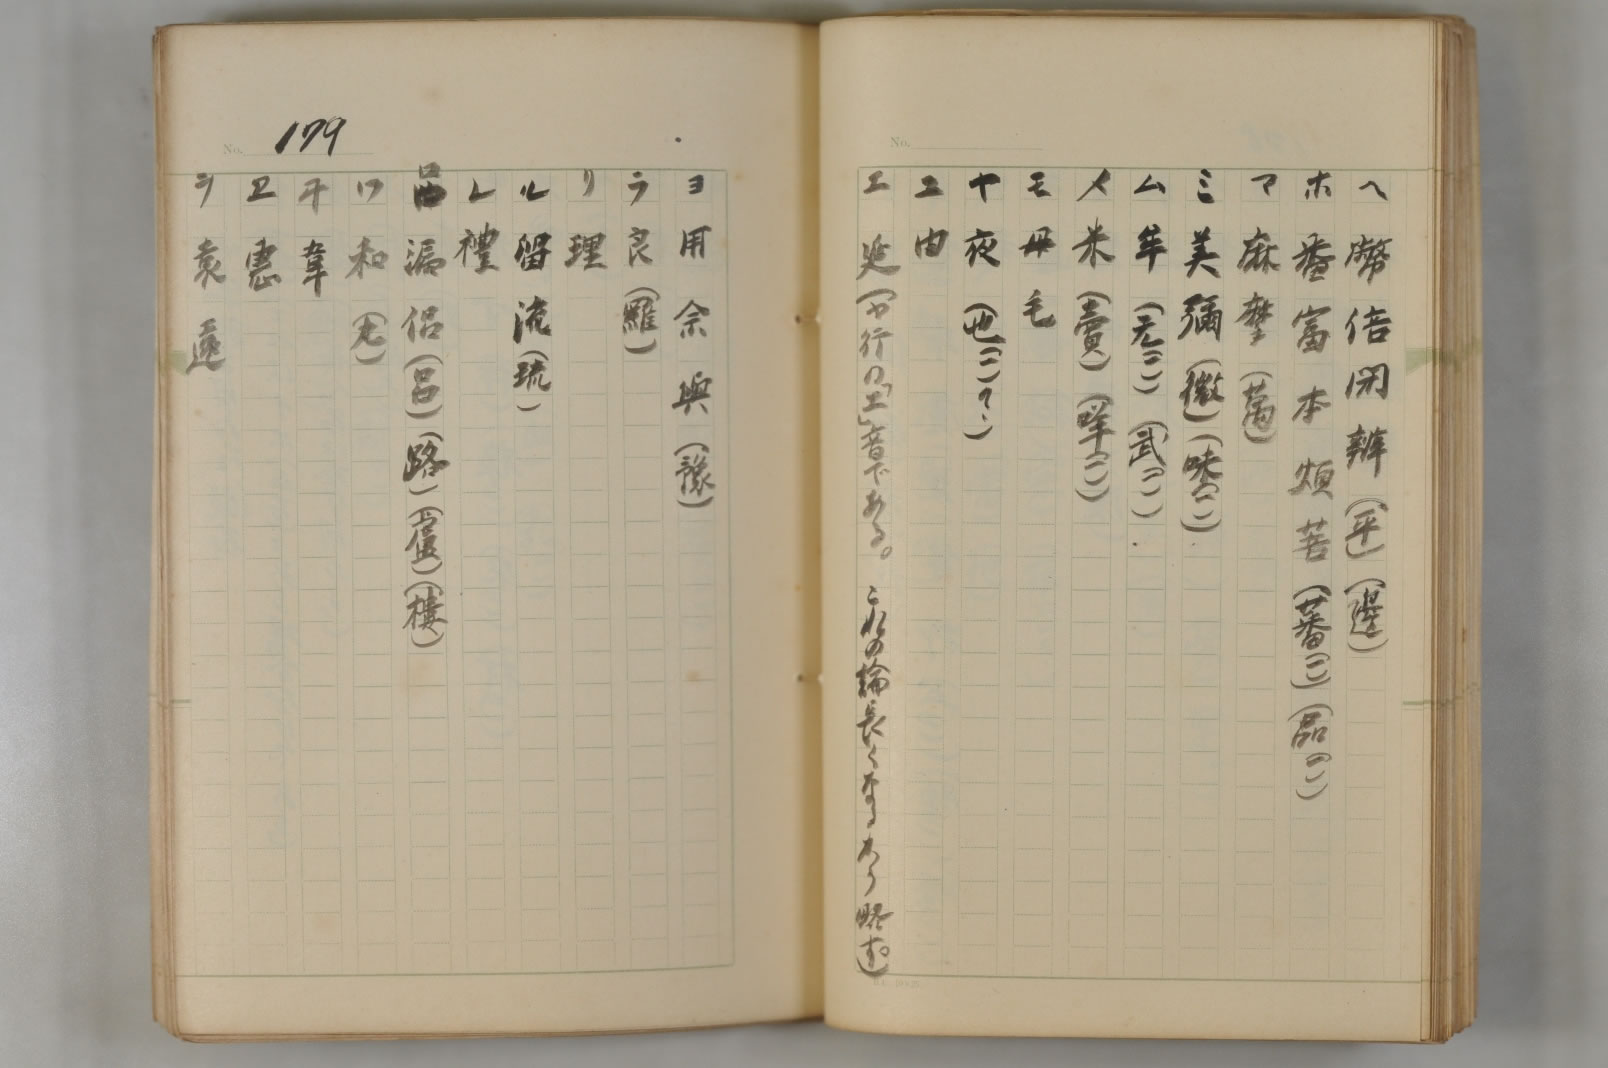 ヘ 幣 倍 閇 辨 (平) (邊)
ホ 番 富 本 煩 菩 (蕃(二)) (品(一))
マ 麻 摩 (萬)
ミ 美 彌 (微) (味(一))
ム 牟 (无(二)) (武(一))
メ 米 (賣) (咩(一))
モ 母 毛
ヤ 夜 (也(二)
ユ 由
エ 延 (ヤ行の「エ」音である。これの論長くなるから略す。)
No. 179
ヨ 用 余 與 (豫)
ラ 良 (羅)
リ 理
ル 留 流 (琉)
レ 禮
呂 漏 侶 (呂) (路) (盧) (樓)
ワ 和 (丸)
ヰ 韋
ヱ 惠
ヲ 袁 遠
No.